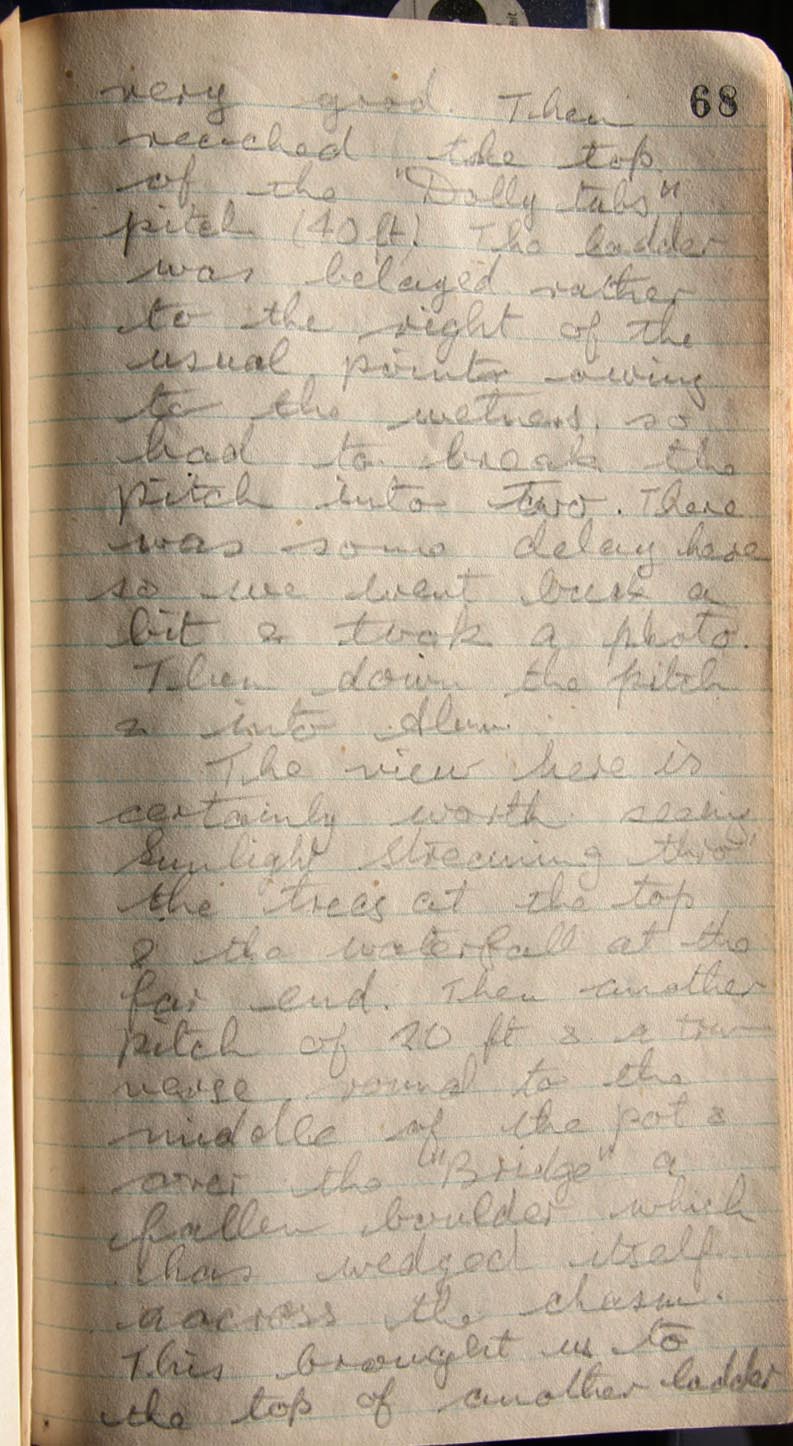 68
very good. Then
reached the top
of the "Dolly tubs"
pitch (40 ft). The ladder
was belayed rather
to the right of the
usual point owing
to the wetness, so
had to break the
pitch into two. There
was some delay here
so we went back a
bit & took a photo.
Then down the pitch
& into Alum.
The view here is
certainly worth seeing
Sunlight streaming thro'
the trees at the top
& the waterfall at the
far end. Then another
pitch of 20 ft & a tra-
verse round to the
middle of the pot &
over the "Bridge" a
fallen boulder which
has wedged itself
aacross the chasm.
This brought us to
the top of another ladder